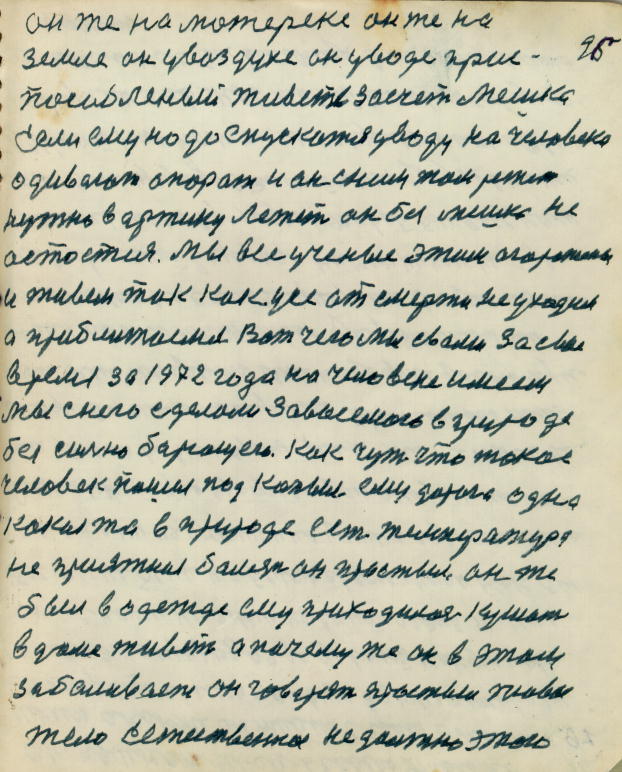 он же на мотереке он же на
95
земле он увоздухе он уводе прис-
пособленый живеть засчет мешка
Если ему надо спускатся уводу на человека
одивают опарат и он сним там
нужно в артику Летит он без мешка не
остостся. мы все ученые этим
и живем так как усе от смерти не уходим
а приближаемся Вот чего мы свами за свае
время за 1972 года на человеке имеем
Мы снего сделали Завасемого в природе
без силно баращего. Как чут что такое
человек пошел под Камыл ему дорога одна
какая та в природе Ест. температура
не приятная балезн он простыл. он же
был в одежде ему приходилос Кушат
вдоме живеть а пачему же он в этом
забаливает он говарят простыл
тело Естественное недолжно этого